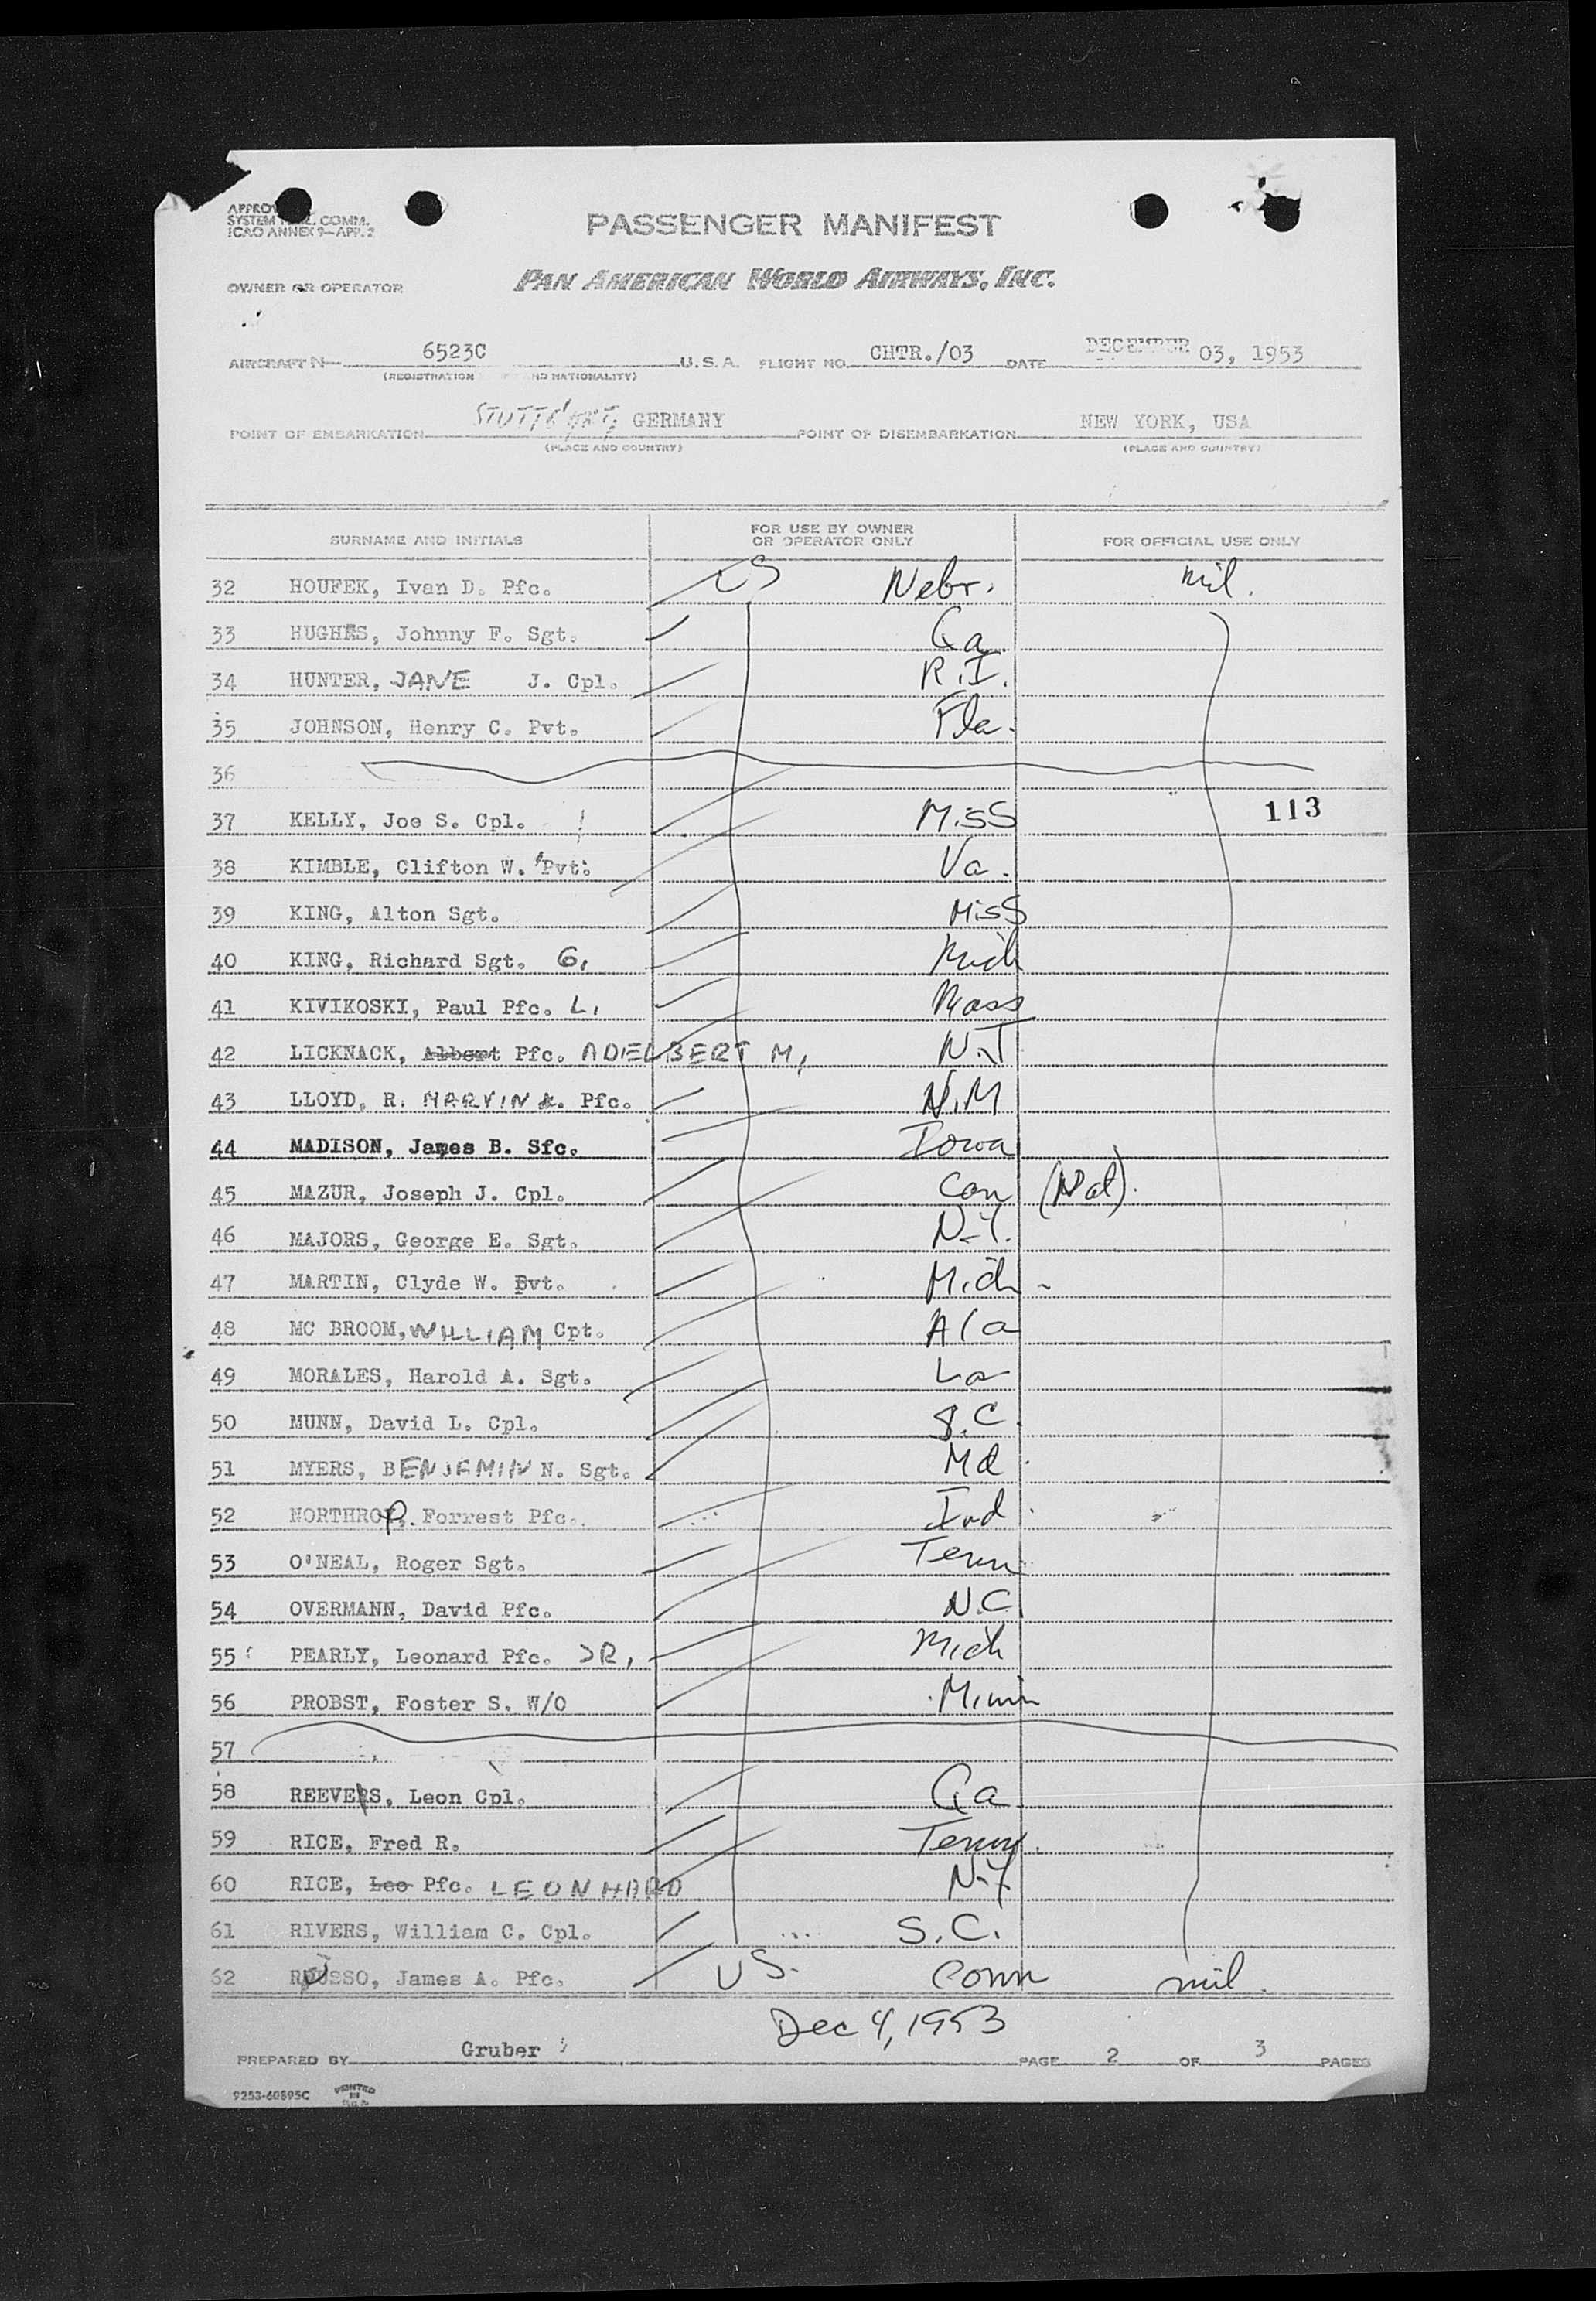 SYSTEM COMM.
ICAO ANNEX 9—APP. 2
PASSENGER MANIFEST
OWNER OR OPERATOR
PAN AMERICAN WORLD AIRWAYS, INC.
AIRCRAFT N— 6523C U.S.A. FLIGHT NO. CHTR./03 DATE DECEMBER 03, 1953
(REGISTRATION ND NATIONALITY)
POINT OF EMBARKATION STUTTGART, GERMANY POINT OF DISEMBARKATION NEW YORK, USA
(PLACE AND COUNTRY) (PLACE AND COUNTRY)
SURNAME AND INITIALS FOR USE BY OWNER OR OPERATOR ONLY FOR OFFICIAL USE ONLY
32 HOUFEK, Ivan D. Pfc. US Nebr. mil.
33 HUGHES, Johnny F. Sgt. Ga
34 HUNTER, JANE J. Cpl. R.I.
35 JOHNSON, Henry C. Pvt. Fla.
36
37 KELLY, Joe S. Cpl. Miss 113
38 KIMBLE, Clifton W. Pvt. Va.
39 KING, Alton Sgt. Miss
40 KING, Richard Sgt. G. Mich
41 KIVIKOSKI, Paul Pfc. L. Mass
42 LICKNACK, Albert Pfc. ADELBERT M, N.J
43 LLOYD, R. MARVIN Pfc. N.M
44 MADISON, James B. Sfc. Iowa
45 MAZUR, Joseph J. Cpl. Can (Nat).
46 MAJORS, George E. Sgt. N.Y.
47 MARTIN, Clyde W. Pvt. Mich
48 MC BROOM, WILLIAM Cpt. Ala
49 MORALES, Harold A. Sgt. La
50 MUNN, David L. Cpl. S.C
51 MYERS, BENJAMIN N. Sgt. Md
52 NORTHROP, Forrest Pfc. Ind
53 O'NEAL, Roger Sgt. Tenn
54 OVERMANN, David Pfc. N.C.
55 PEARLY, Leonard Pfc. JR, Mich
56 PROBST, Foster S. W/O Minn
57
58 REEVES, Leon Cpl. Ga
59 RICE, Fred R. Tenn.
60 RICE, Leo Pfc. LEONHARD N.Y
61 RIVERS, William C. Cpl. S.C.
62 RUSSO, James A. Pfc. US. Conn mil.
Dec 4, 1953
PREPARED BY Gruber PAGE 2 OF 3 PAGES
9253-60895C PRINTED IN